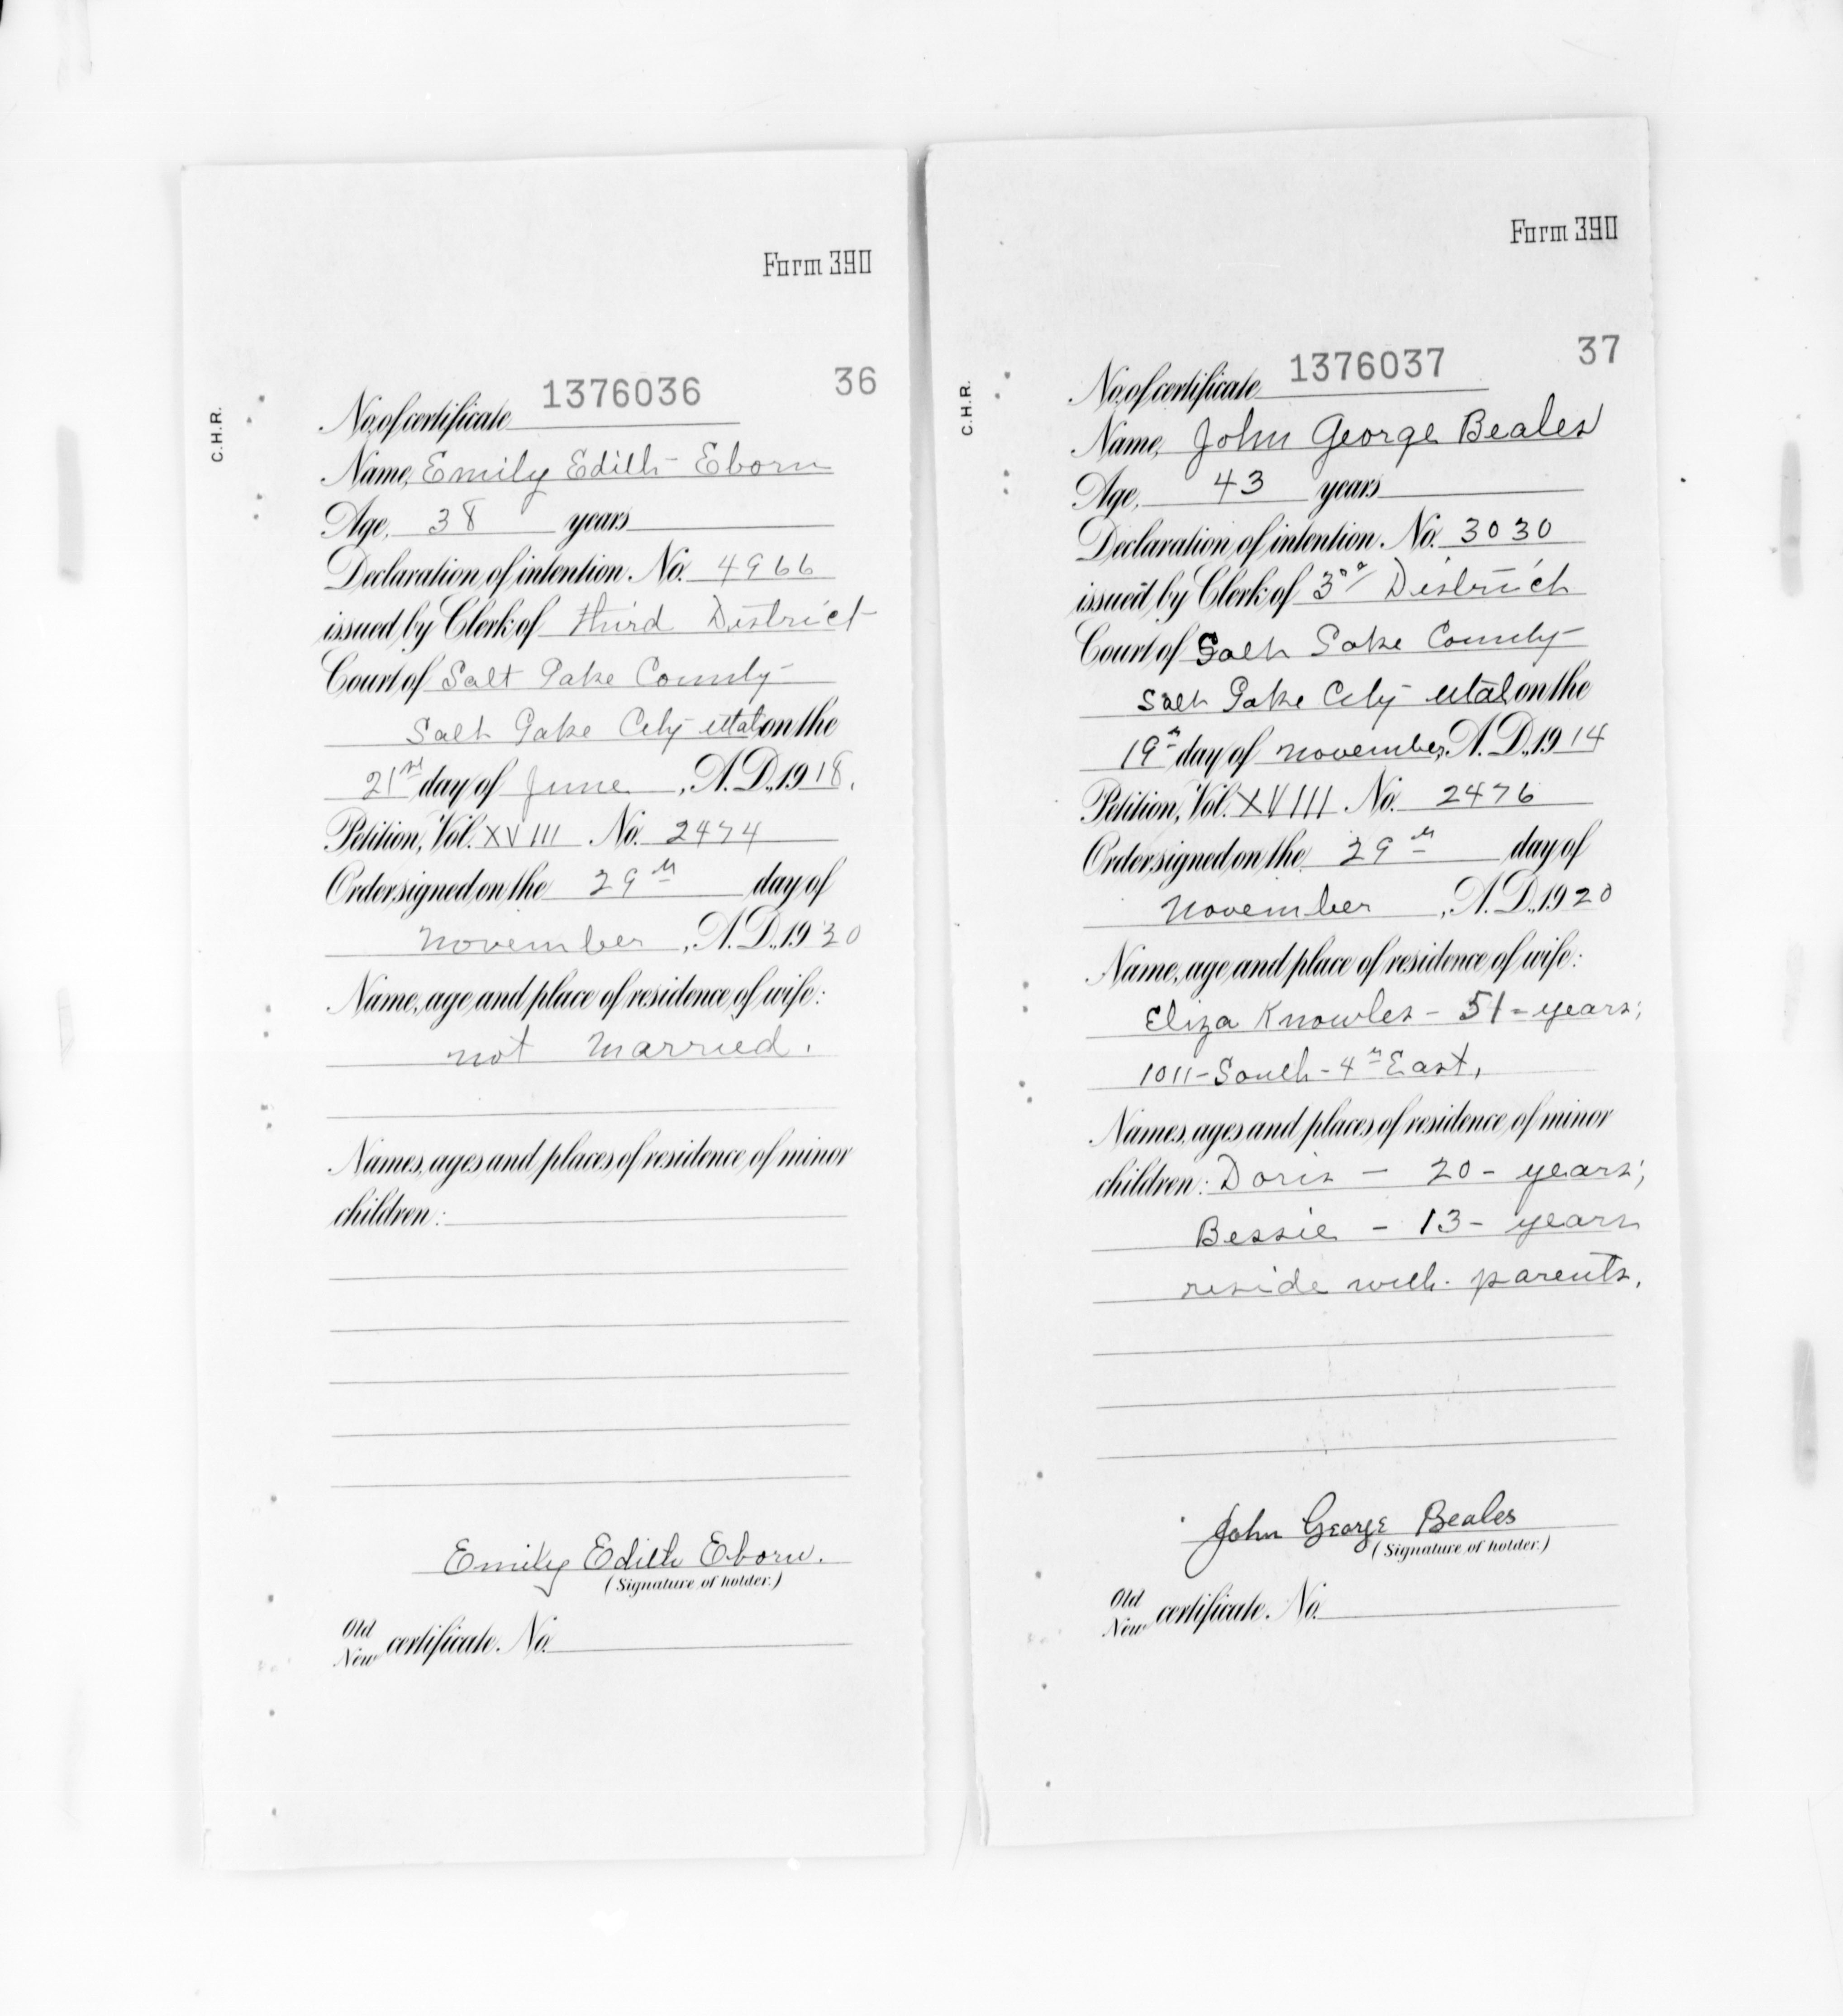 Form 390
C.H.R.
36
No. of certificate 1376036
Name, Emily Edith Eborn
Age, 38 years
Declaration of intention. No. 4966
issued by Clerk of third District
Court of Salt Lake County
Salt Lake City Utah on the
21st day of June, A.D., 1918.
Petition, Vol. XVIII No. 2474
Order signed on the 29th day of
November, A.D., 1920
Name, age and place of residence of wife:
not married.
Names, ages and places of residence of minor
children:
Emily Edith Eborn.
(Signature of holder.)
Old
New certificate. No.
Form 390
C.H.R.
37
No. of certificate 1376037
Name, John George Beales
Age, 43 years
Declaration of intention. No. 3030
issued by Clerk of 3rd District
Court of Salt Lake County
Salt Lake City Utah on the
19th day of November, A.D., 1914
Petition, Vol. XVIII No. 2476
Order signed on the 29th day of
November, A.D., 1920
Name, age and place of residence of wife:
Eliza Knowles - 51 - years;
1011 - South - 4th East,
Names, ages and places of residence of minor
children: Doris - 20 - years;
Bessie - 13 - years
reside with parents.
John George Beales
(Signature of holder.)
Old
New certificate. No.